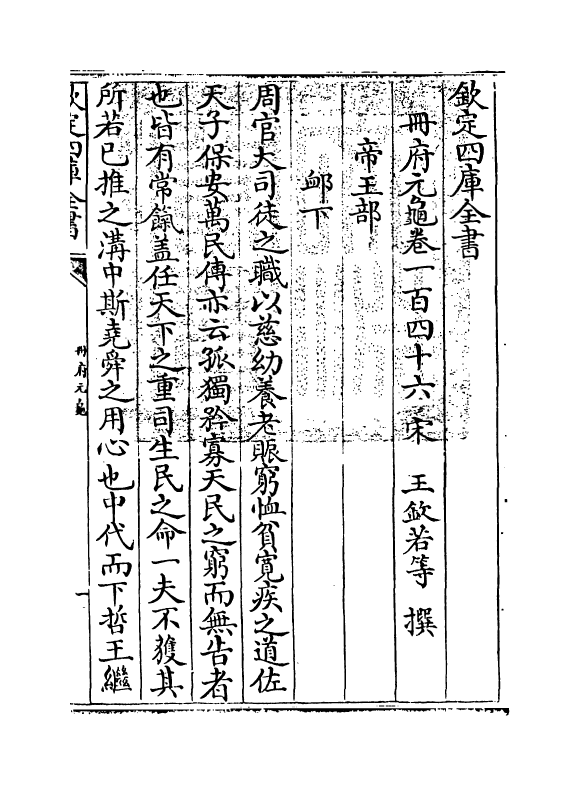 欽定四庫全書
冊府元龜卷一百四十六 宋 王欽若等 撰
帝王部
卹下
周官大司徒之職以慈幼養老賑窮恤貧寛疾之道佐
天子保安萬民傳亦云孤獨矜寡天民之窮而無告者
也皆有常餼盖任天下之重司生民之命一夫不獲其
所若已推之溝中斯堯舜之用心也中代而下哲王繼
欽定四庫全書
冊府元龜
一